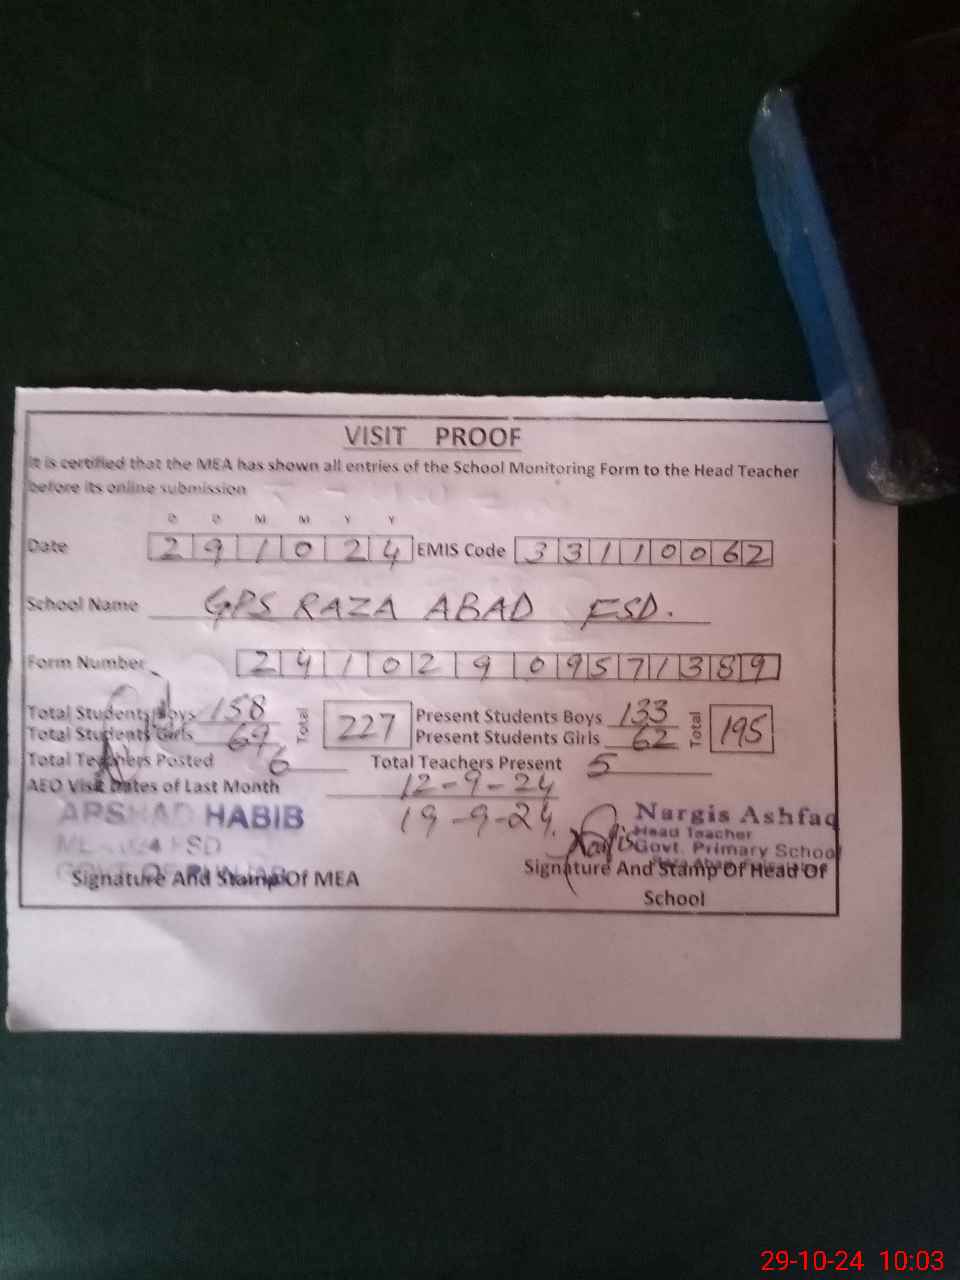 VISIT PROOF
It is certified that the MEA has shown all entries of the School Monitoring Form to the Head Teacher
before its online submission
D D M M Y Y
Date 2 9 1 0 2 4 EMIS Code 3 3 1 1 0 0 6 2
School Name GPS RAZA ABAD FSD.
Form Number 2 4 1 0 2 9 0 9 5 7 1 3 8 9
Total Students Boys 158 Total 227 Present Students Boys 133 Total 195
Total Students Girls 69 Present Students Girls 62
Total Teachers Posted 6 Total Teachers Present 5
AEO Visit Dates of Last Month 12-9-24
19-9-24.
ARSHAD HABIB
FSD
Nargis Ashfaq
Head Teacher
Govt. Primary School
Signature And Stamp Of MEA
Signature And Stamp Of Head Of
School
29-10-24 10:03